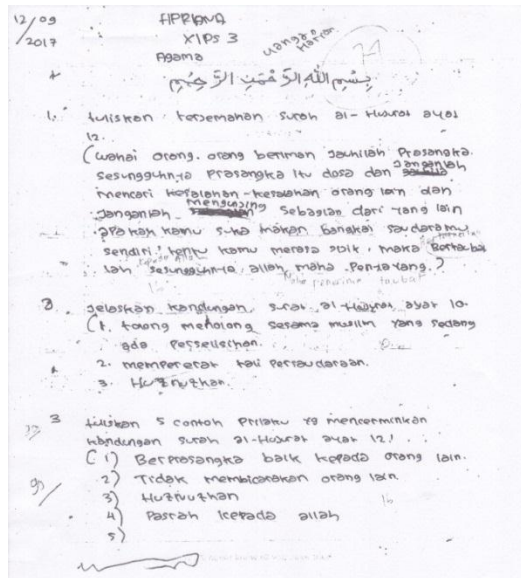 12/09
2017
APRIANA
XIPS 3
Agama
ulangan
Harian
بِسْمِ اللهِ الرَّحْمٰنِ الرَّحِيْمِ
1. tuliskan tersemahan surah al-Hujurat ayat
12.
(wahai orang-orang beriman jauhilah Prasangka.
sesungguhnya Prasangka itu dosa dan janganlah
mencari kesalahan-kesalahan orang lain dan
janganlah menggunjing sebagian dari yang lain
apakah kamu suka makan bangkai saudaramu
sendiri, tentu kamu merasa jijik, maka Bertaubat
lah kepada Allah sesungguhnya, allah maha Penyayang.)
maha penerima taubat
2. jelaskan kandungan, surat, al-Hujurat ayat 10.
(1. tolong menolong sesama muslim yang sedang
ada Perselisihan.
2. mempererat tali Persaudaraan.
3. Huznuzhan.
3 tuliskan 5 contoh Prilaku yg mencerminkan
kandungan surah al-Hujurat ayat 12!
(1) Berprasangka baik kepada orang lain.
2) Tidak membicarakan orang lain.
3) Huznuzhan
4) Pasrah kepada allah
5)